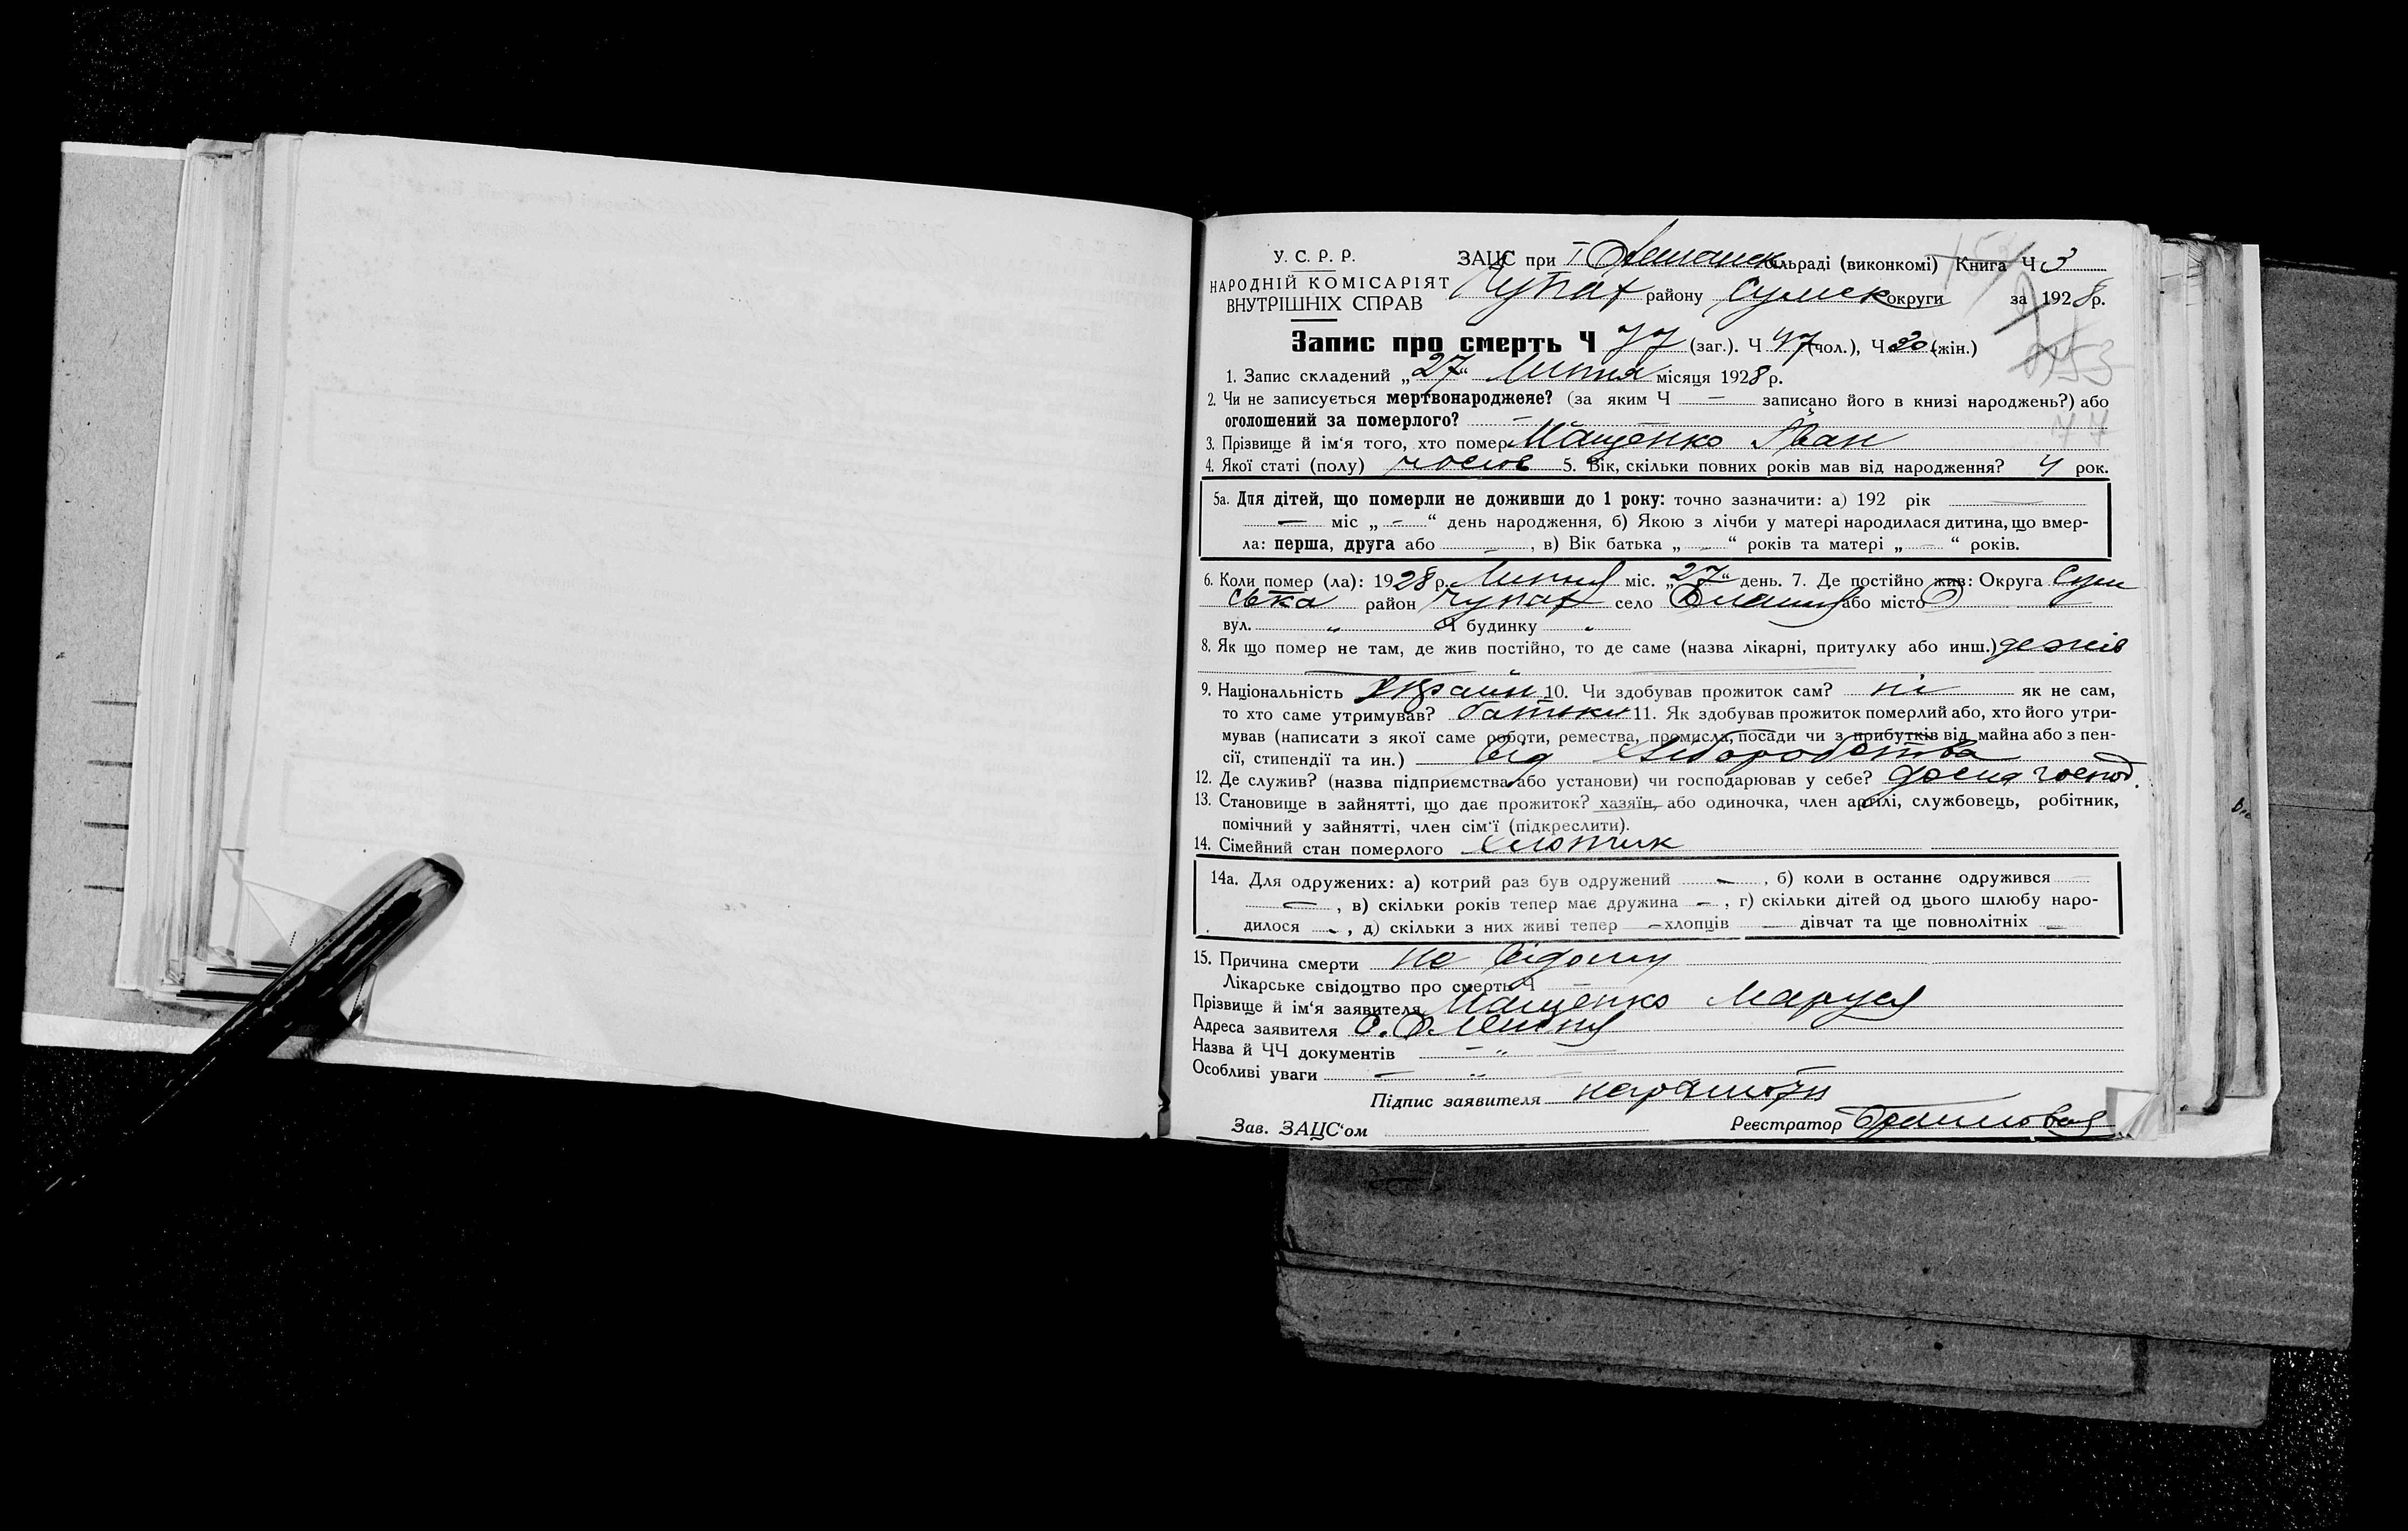 У. С. Р. Р.
НАРОДНІЙ КОМІСАРІЯТ
ВНУТРІШНІХ СПРАВ
ЗАЦС при І сільраді (виконкомі) Книга Ч 3
Чупах району Сумск округи за 1928 р.
Запис про смерть Ч 77 (заг.). Ч 47 (чол.), Ч 30 (жін.)
1. Запис складений „27“ Липня місяця 1928 р.
2. Чи не записується мертвонароджене? (за яким Ч — записано його в книзі народжень?) або
оголошений за померлого? —
77
3. Прізвище й ім‘я того, хто помер Мащенко Іван
4. Якої статі (полу) чолов 5. Вік, скільки повних років мав від народження? 4 рок.
5а. Для дітей, що померли не доживши до 1 року: точно зазначити: а) 192 рік —
— міс „ — “ день народження, б) Якою з лічби у матері народилася дитина, що вмер-
ла: перша, друга або — , в) Вік батька „ — “ років та матері „ — “ років.
6. Коли помер (ла): 1928 р. Липня міс. „27“ день. 7. Де постійно жив: Округа Сум
ська район Чупах село або місто
вул. „ Ч будинку „
8. Як що помер не там, де жив постійно, то де саме (назва лікарні, притулку або инш.) де жив
9. Національність Украйн 10. Чи здобував прожиток сам? ні як не сам,
то хто саме утримував? батьки 11. Як здобував прожиток померлий або, хто його утри-
мував (написати з якої саме роботи, ремества, промисла, посади чи з прибутків від майна або з пен-
сії, стипендії та ин.) від хліборобства
12. Де служив? (назва підприємства або установи) чи господарював у себе? господ.
13. Становище в зайнятті, що дає прожиток? хазяїн, або одиночка, член артілі, службовець, робітник,
помічний у зайнятті, член сім‘ї (підкреслити).
14. Сімейний стан померлого хлопчик
14а. Для одружених: а) котрий раз був одружений — , б) коли в останнє одружився —
— , в) скільки років тепер має дружина — , г) скільки дітей од цього шлюбу наро-
дилося — , д) скільки з них живі тепер — хлопців — дівчат та ще повнолітніх —
15. Причина смерти не відому
Лікарське свідоцтво про смерть Ч —
Прізвище й ім‘я заявителя Мащенко Маруся
Адреса заявителя с.
Назва й ЧЧ документів — „ —
Особливі уваги — „ —
Підпис заявителя неграмотн
Зав. ЗАЦС‘ом Реєстратор